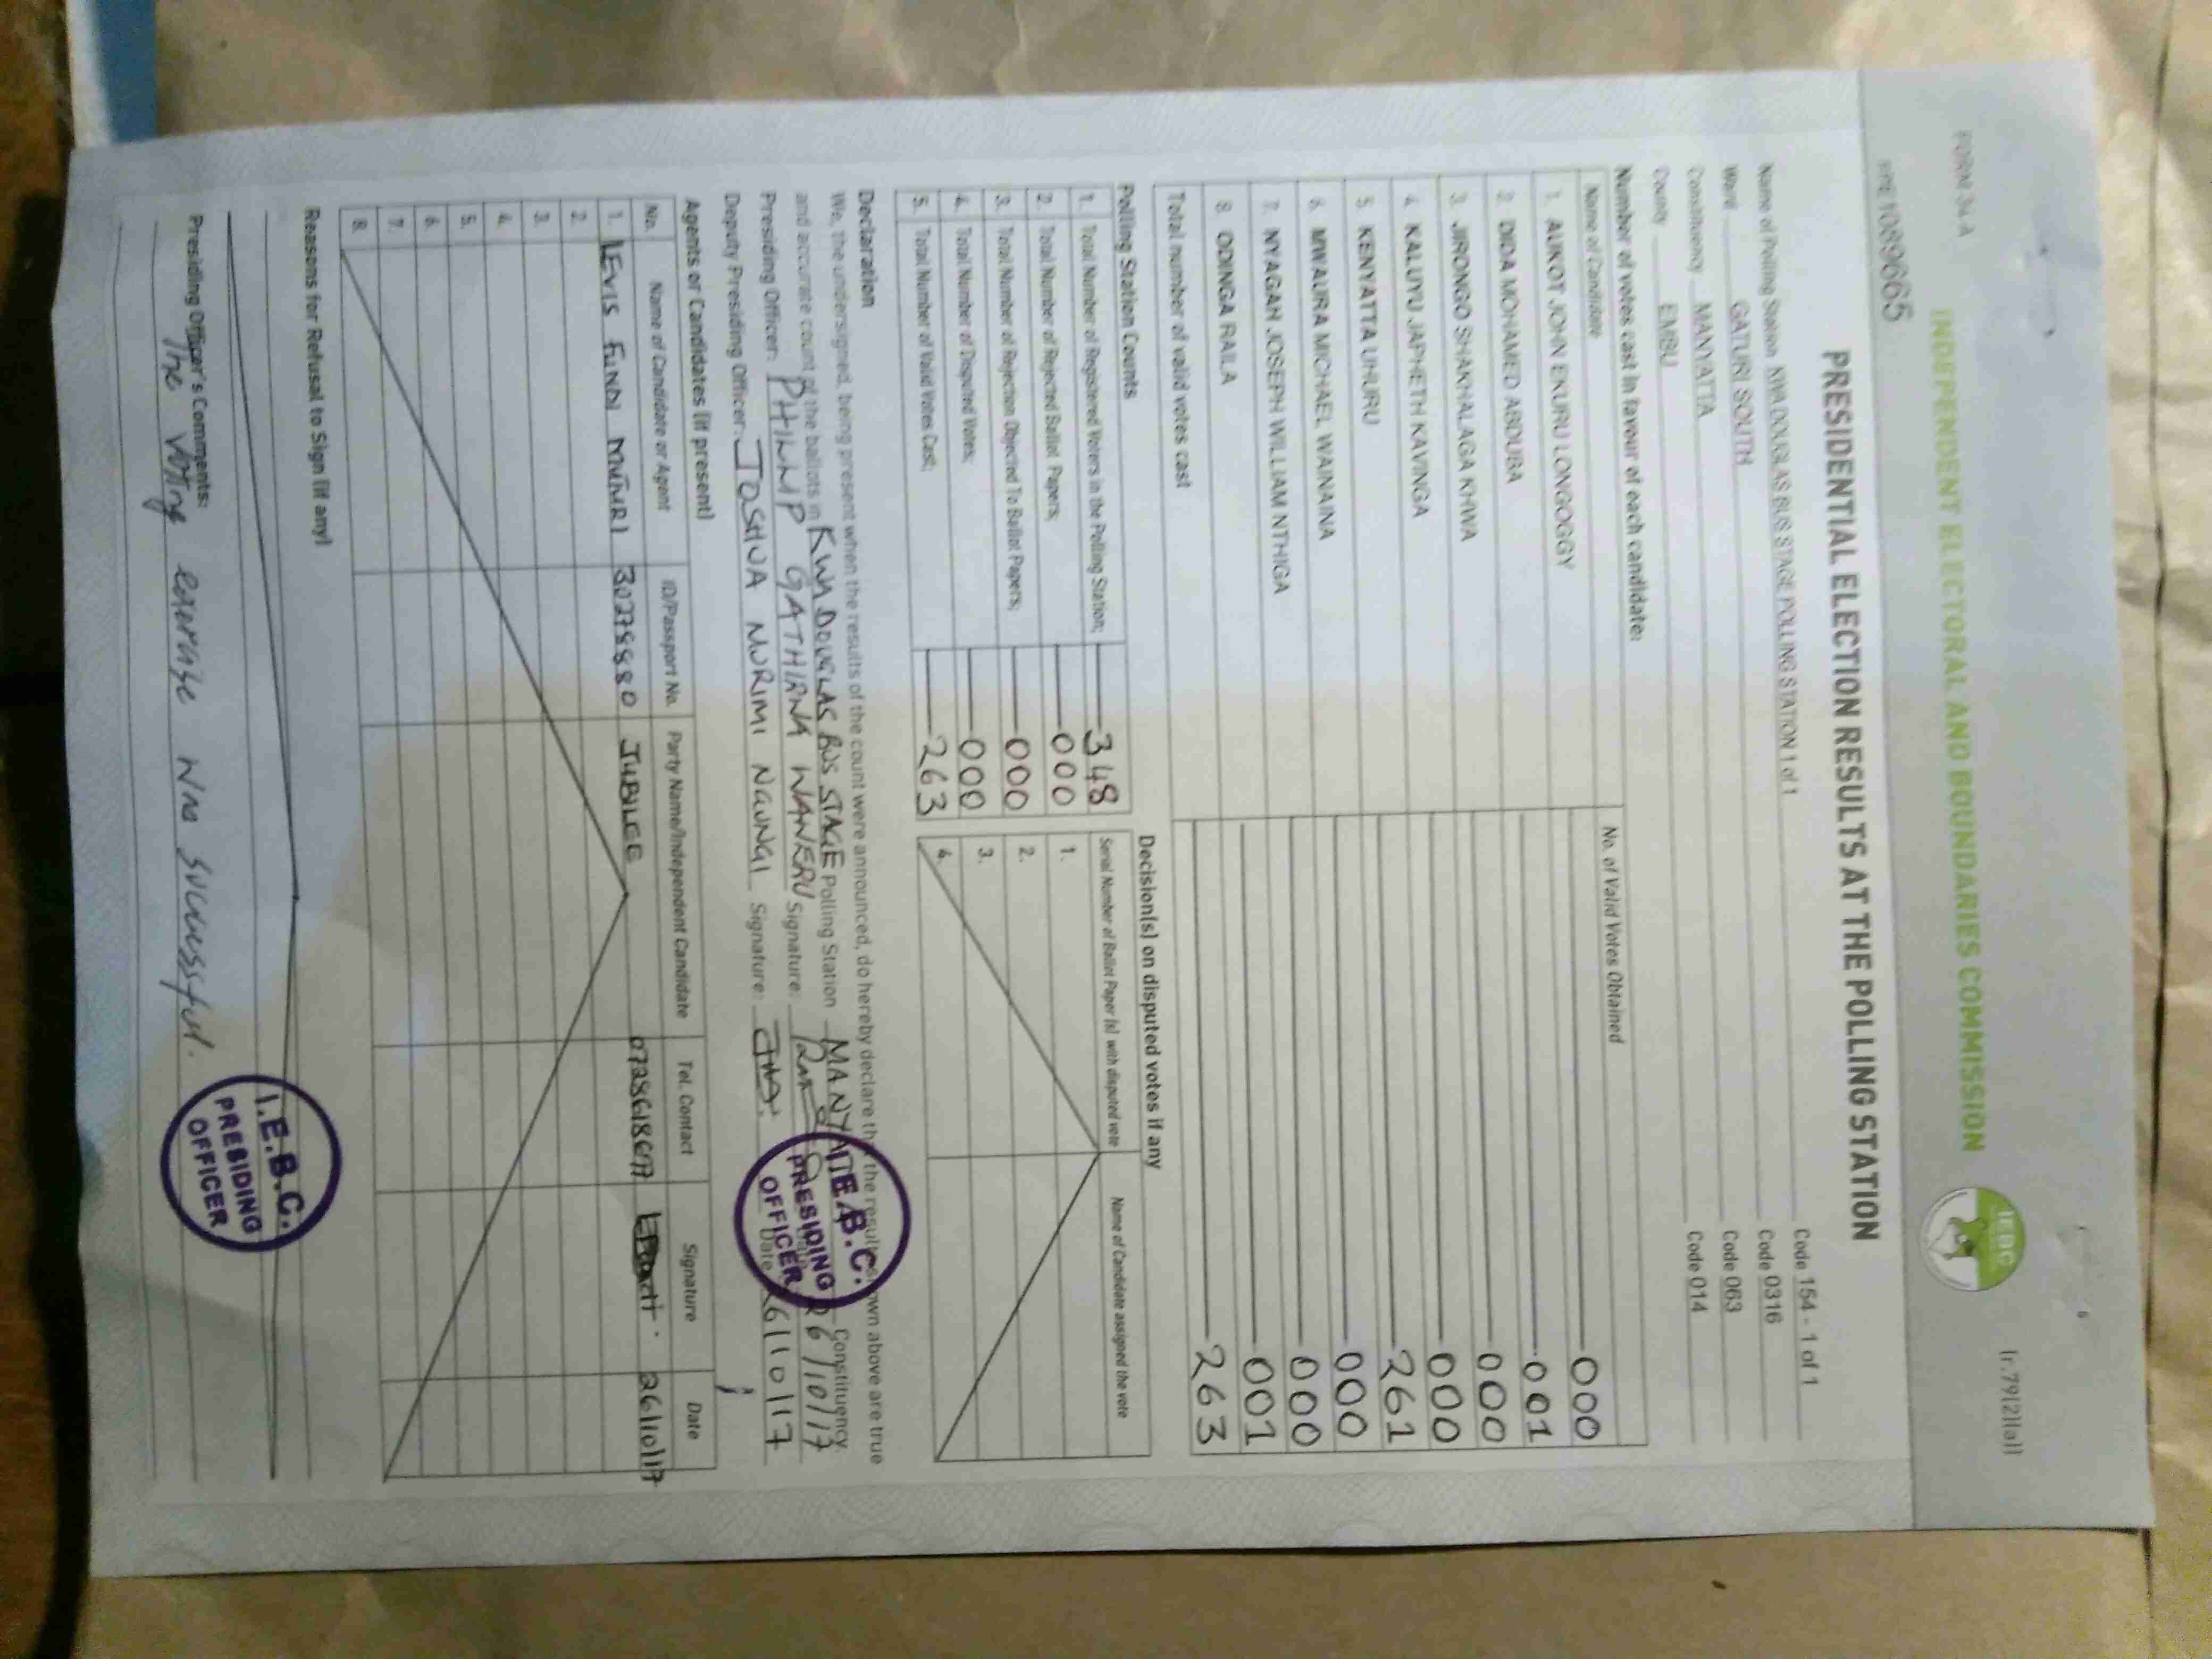 FORM 34A
[r.79(2)(a)]
INDEPENDENT ELECTORAL AND BOUNDARIES COMMISSION
IEBC
PRESIDENTIAL ELECTION RESULTS AT THE POLLING STATION
Name of Polling Station KWA DOUGLAS BUS STAGE POLLING STATION 1 of 1 Code 154 - 1 of 1
Ward GATURI SOUTH Code 0316
Constituency MANYATTA Code 063
County EMBU Code 014
Number of votes cast in favour of each candidate:
Name of Candidate No. of Valid Votes Obtained
1. AUKOT JOHN EKURU LONGOGGY 000
2. DIDA MOHAMED ABDUBA 001
3. JIRONGO SHAKHALAGA KHWA 000
4. KALUYU JAPHETH KAVINGA 000
5. KENYATTA UHURU 261
6. MWAURA MICHAEL WAINAINA 000
7. NYAGAH JOSEPH WILLIAM NTHIGA 000
8. ODINGA RAILA 001
Total number of valid votes cast 263
Polling Station Counts
1. Total Number of Registered Voters in the Polling Station; 348
2. Total Number of Rejected Ballot Papers; 000
3. Total Number of Rejection Objected To Ballot Papers; 000
4. Total Number of Disputed Votes; 000
5. Total Number of Valid Votes Cast; 263
Decision(s) on disputed votes if any
Serial Number of Ballot Paper (s) with disputed vote Name of Candidate assigned the vote
1.
2.
3.
4.
Declaration
We, the undersigned, being present when the results of the count were announced, do hereby declare the results own above are true
and accurate count of the ballots in KWA DOUGLAS BUS STAGE Polling Station Constituency
Presiding Officer: PHILLIP GATHIRWA WANERU Signature: 26/10/17
Deputy Presiding Officer: JOSHUA MURIMI Signature: Date 26/10/17
I.E.B.C.
PRESIDING
OFFICER
Agents or Candidates (if present)
No. Name of Candidate or Agent ID/Passport No. Party Name/Independent Candidate Tel. Contact Signature Date
1. LEVIS FUNDI MUTURI 30278880 JUBILEE 26/10/17
2.
3.
4.
5.
6.
7.
8.
Reasons for Refusal to Sign (if any)
Presiding Officer's Comments:
The voting exercise was successful.
I.E.B.C.
PRESIDING
OFFICER